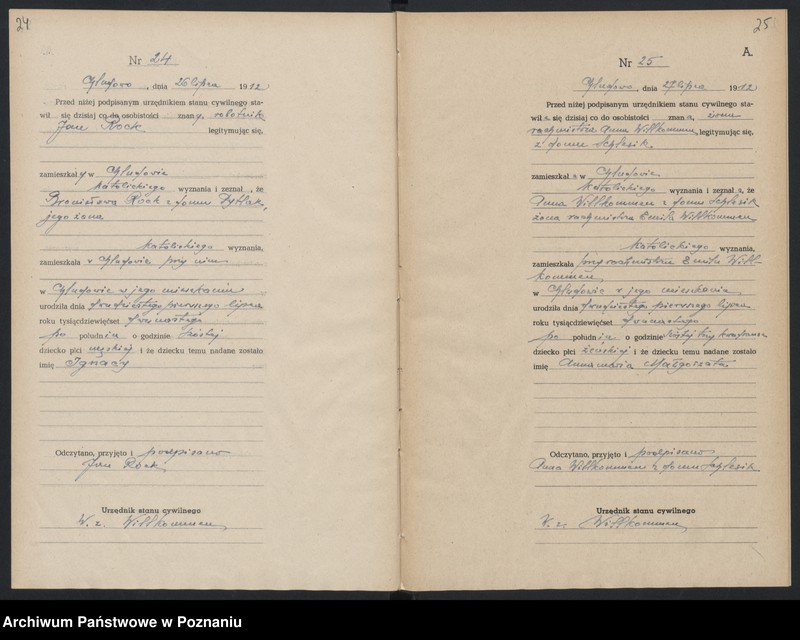 24
Nr 24
, dnia 26 lipca 1912
Przed niżej podpisanym urzędnikiem stanu cywilnego sta-
wił się dzisiaj co do osobistości znany, robotnik
Jan Rock legitymując się,
zamieszkały w
katolickiego wyznania i zeznał, że
Bronisława Rock z domu
jego żona
katolickiego wyznania,
zamieszkała w przy nim
w w jego mieszkaniu
urodziła dnia dwudziestego pierwszego lipca
roku tysiącdziewięćset dwunastego
po południu o godzinie szóstej
dziecko płci męskiej i że dziecku temu nadane zostało
imię Ignacy
Odczytano, przyjęto i podpisano
Jan Rock
Urzędnik stanu cywilnego
W. z. Willkommen
25
A.
Nr 25
, dnia 27 lipca 1912
Przed niżej podpisanym urzędnikiem stanu cywilnego sta-
wiła się dzisiaj co do osobistości znana, żona
Anna Willkommen, legitymując się,
z domu
zamieszkała w
katolickiego wyznania i zeznała, że
Anna Willkommen z domu
żona Emila Willkommen
katolickiego wyznania,
zamieszkała przy Emilu Will-
kommen
w w jego mieszkaniu
urodziła dnia dwudziestego pierwszego lipca
roku tysiącdziewięćset dwunastego
po południu o godzinie szóstej trzy kwadranse
dziecko płci żeńskiej i że dziecku temu nadane zostało
imię Annamaria Małgorzata
Odczytano, przyjęto i podpisano
Anna Willkommen z domu
Urzędnik stanu cywilnego
W. z. Willkommen
Archiwum Państwowe w Poznaniu